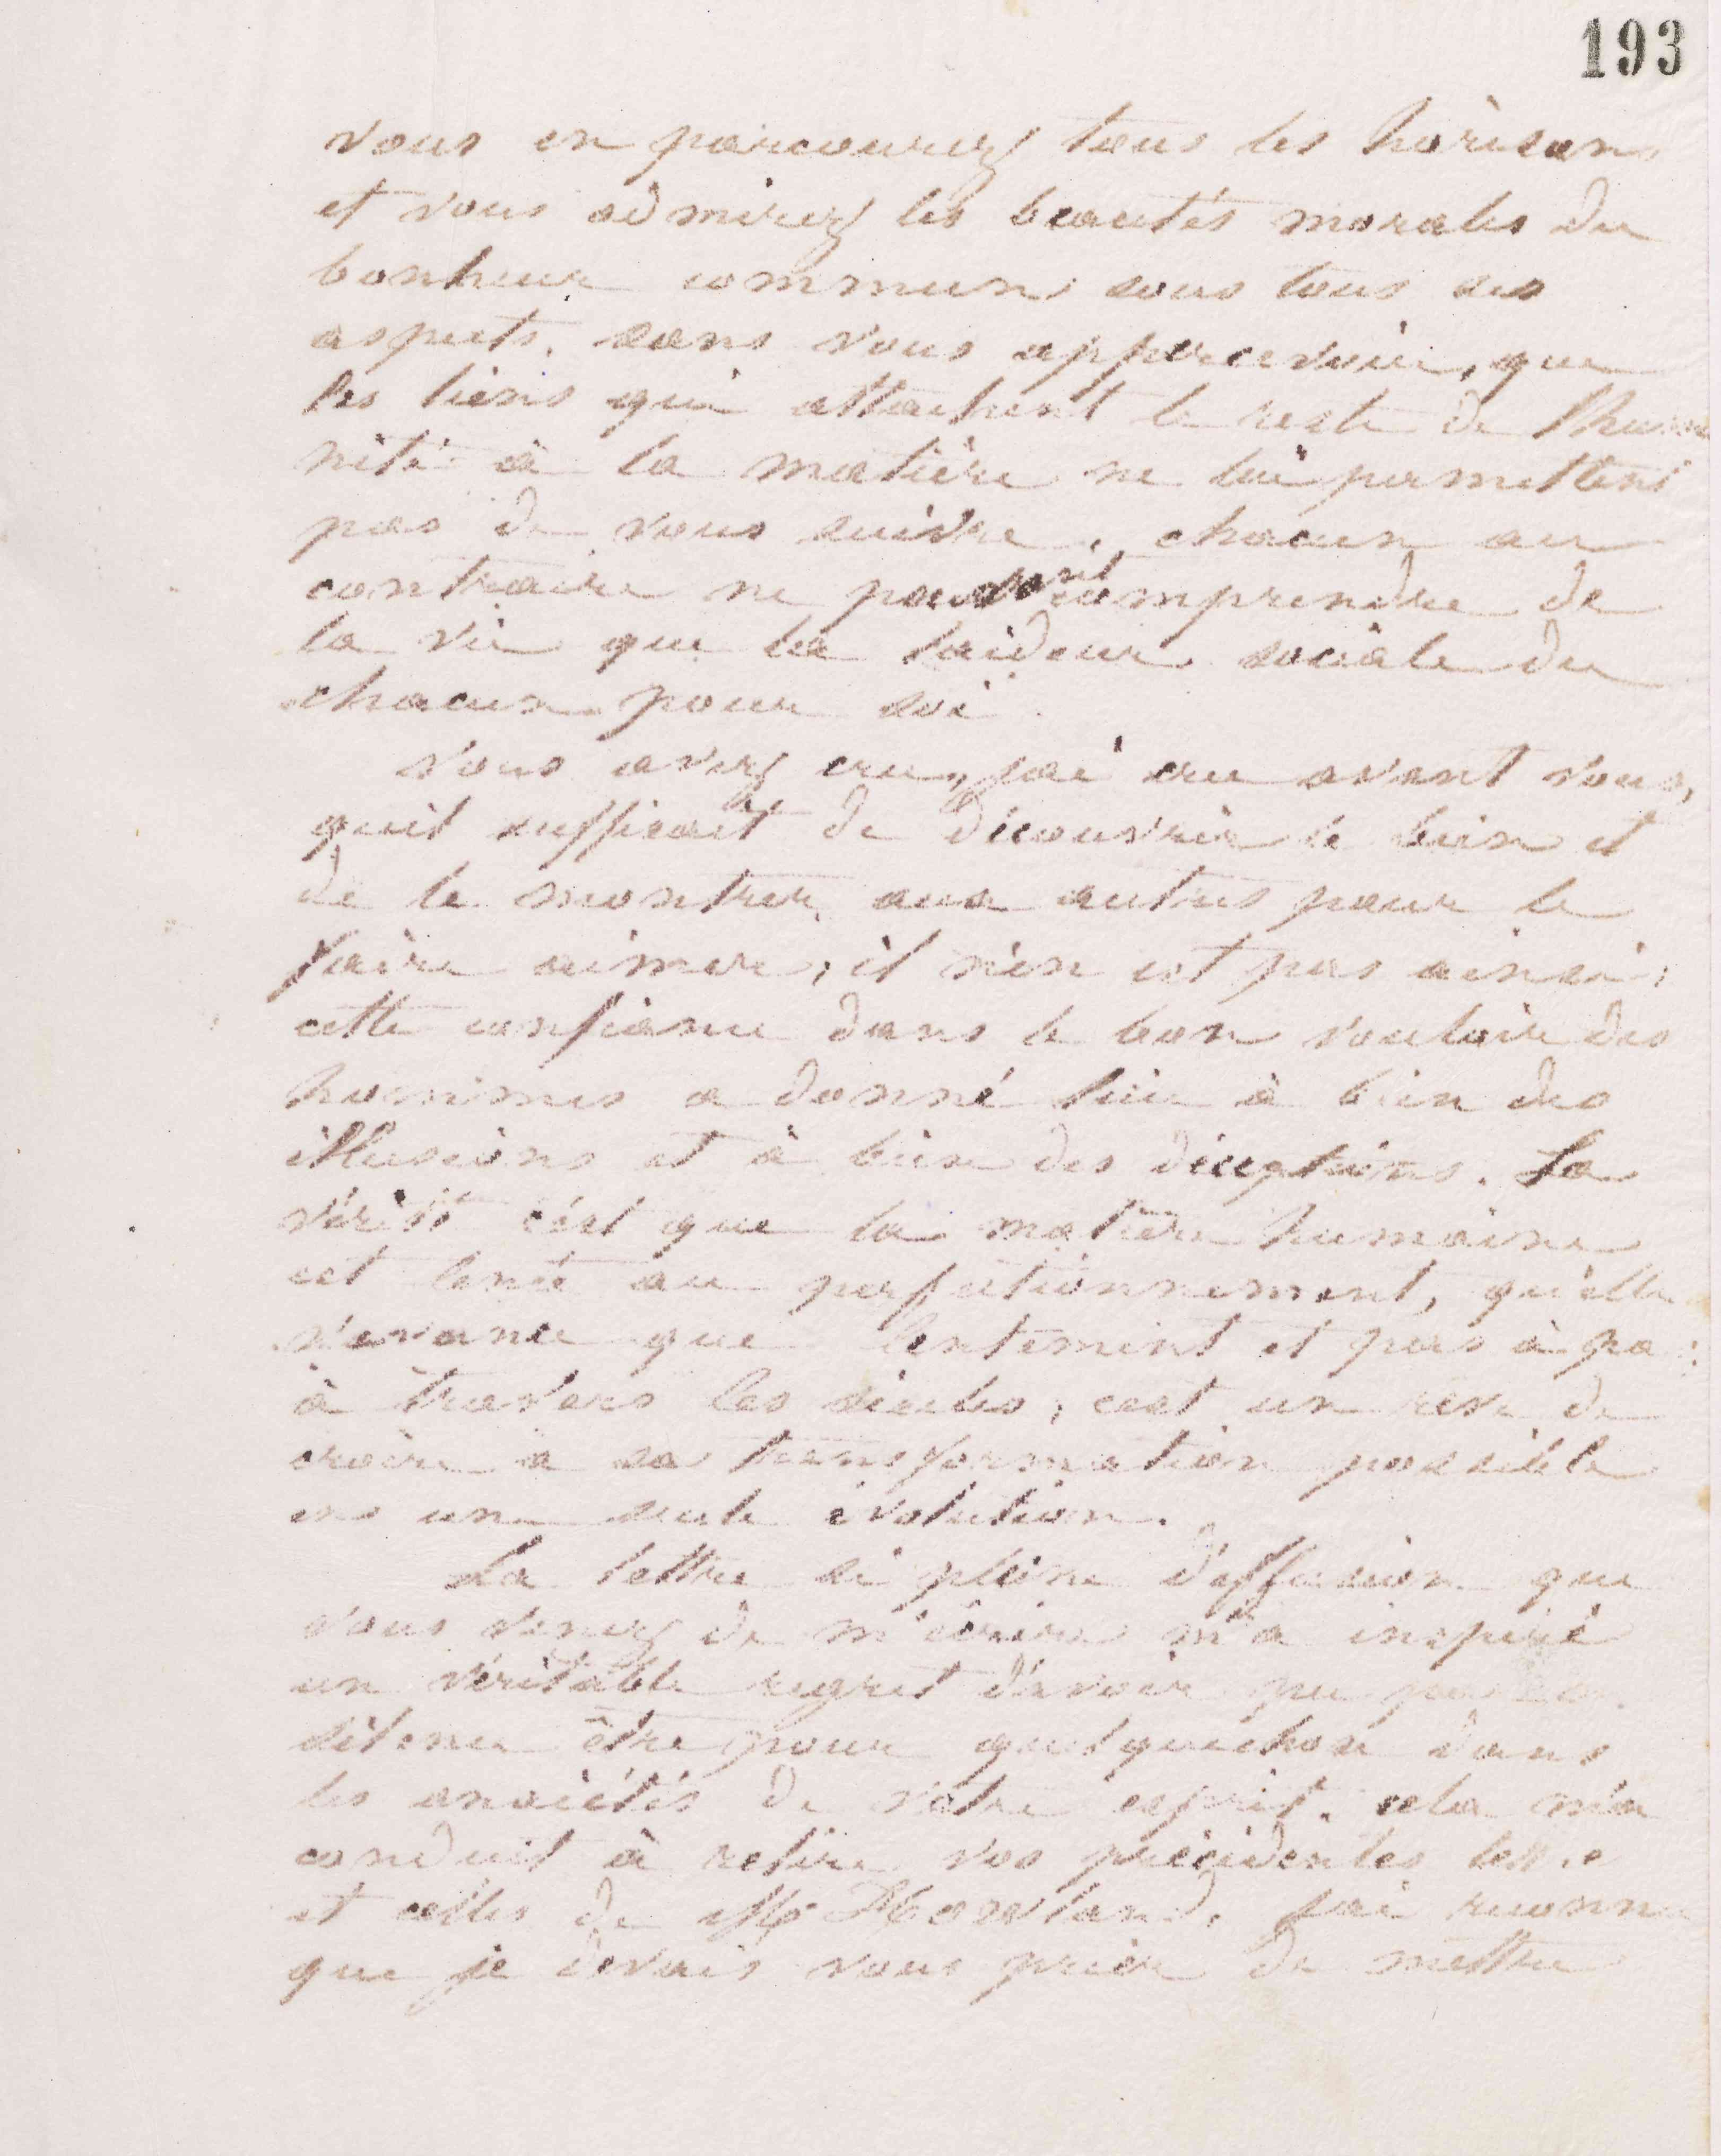 193
vous en parcourez tous les horisons
et vous admirez les beautés morales du
bonheur commun sous tous ses
aspects, sans vous appercevoir, que
les liens qui attachent le reste de l'huma
nité à la matière ne lui permettent
pas de vous suivre, chacun au
contraire ne pouvant comprendre de
la vie que la laideur sociale du
chacun pour soi.
Vous avez cru, j'ai cru avant vous,
qu'il suffisait de découvrir le bien et
de le montrer aux autres pour le
faire aimer, il n'en est pas ainsi,
cette confiance dans le bon vouloir des
hommes a donné lieu à bien des
illusions et à bien des déceptions. La
vérité c'est que la matière humaine
est lente au perfectionnement, qu'elle
n'avance que lentement et pas à pas
à travers les siècles, c'est un rêve de
croire à sa transformation possible
en une seule évolution.
La lettre si pleine d'effusion que
vous venez de m'écrire m'a inspiré
un véritable regret d'avoir pu par mon
silence être pour quelque chose dans
les anxiétés de votre esprit. cela m'a
conduit à relire vos précédentes lettres
et celles de Mr Howland. j'ai reconnu
que je devais vous prier de mettre